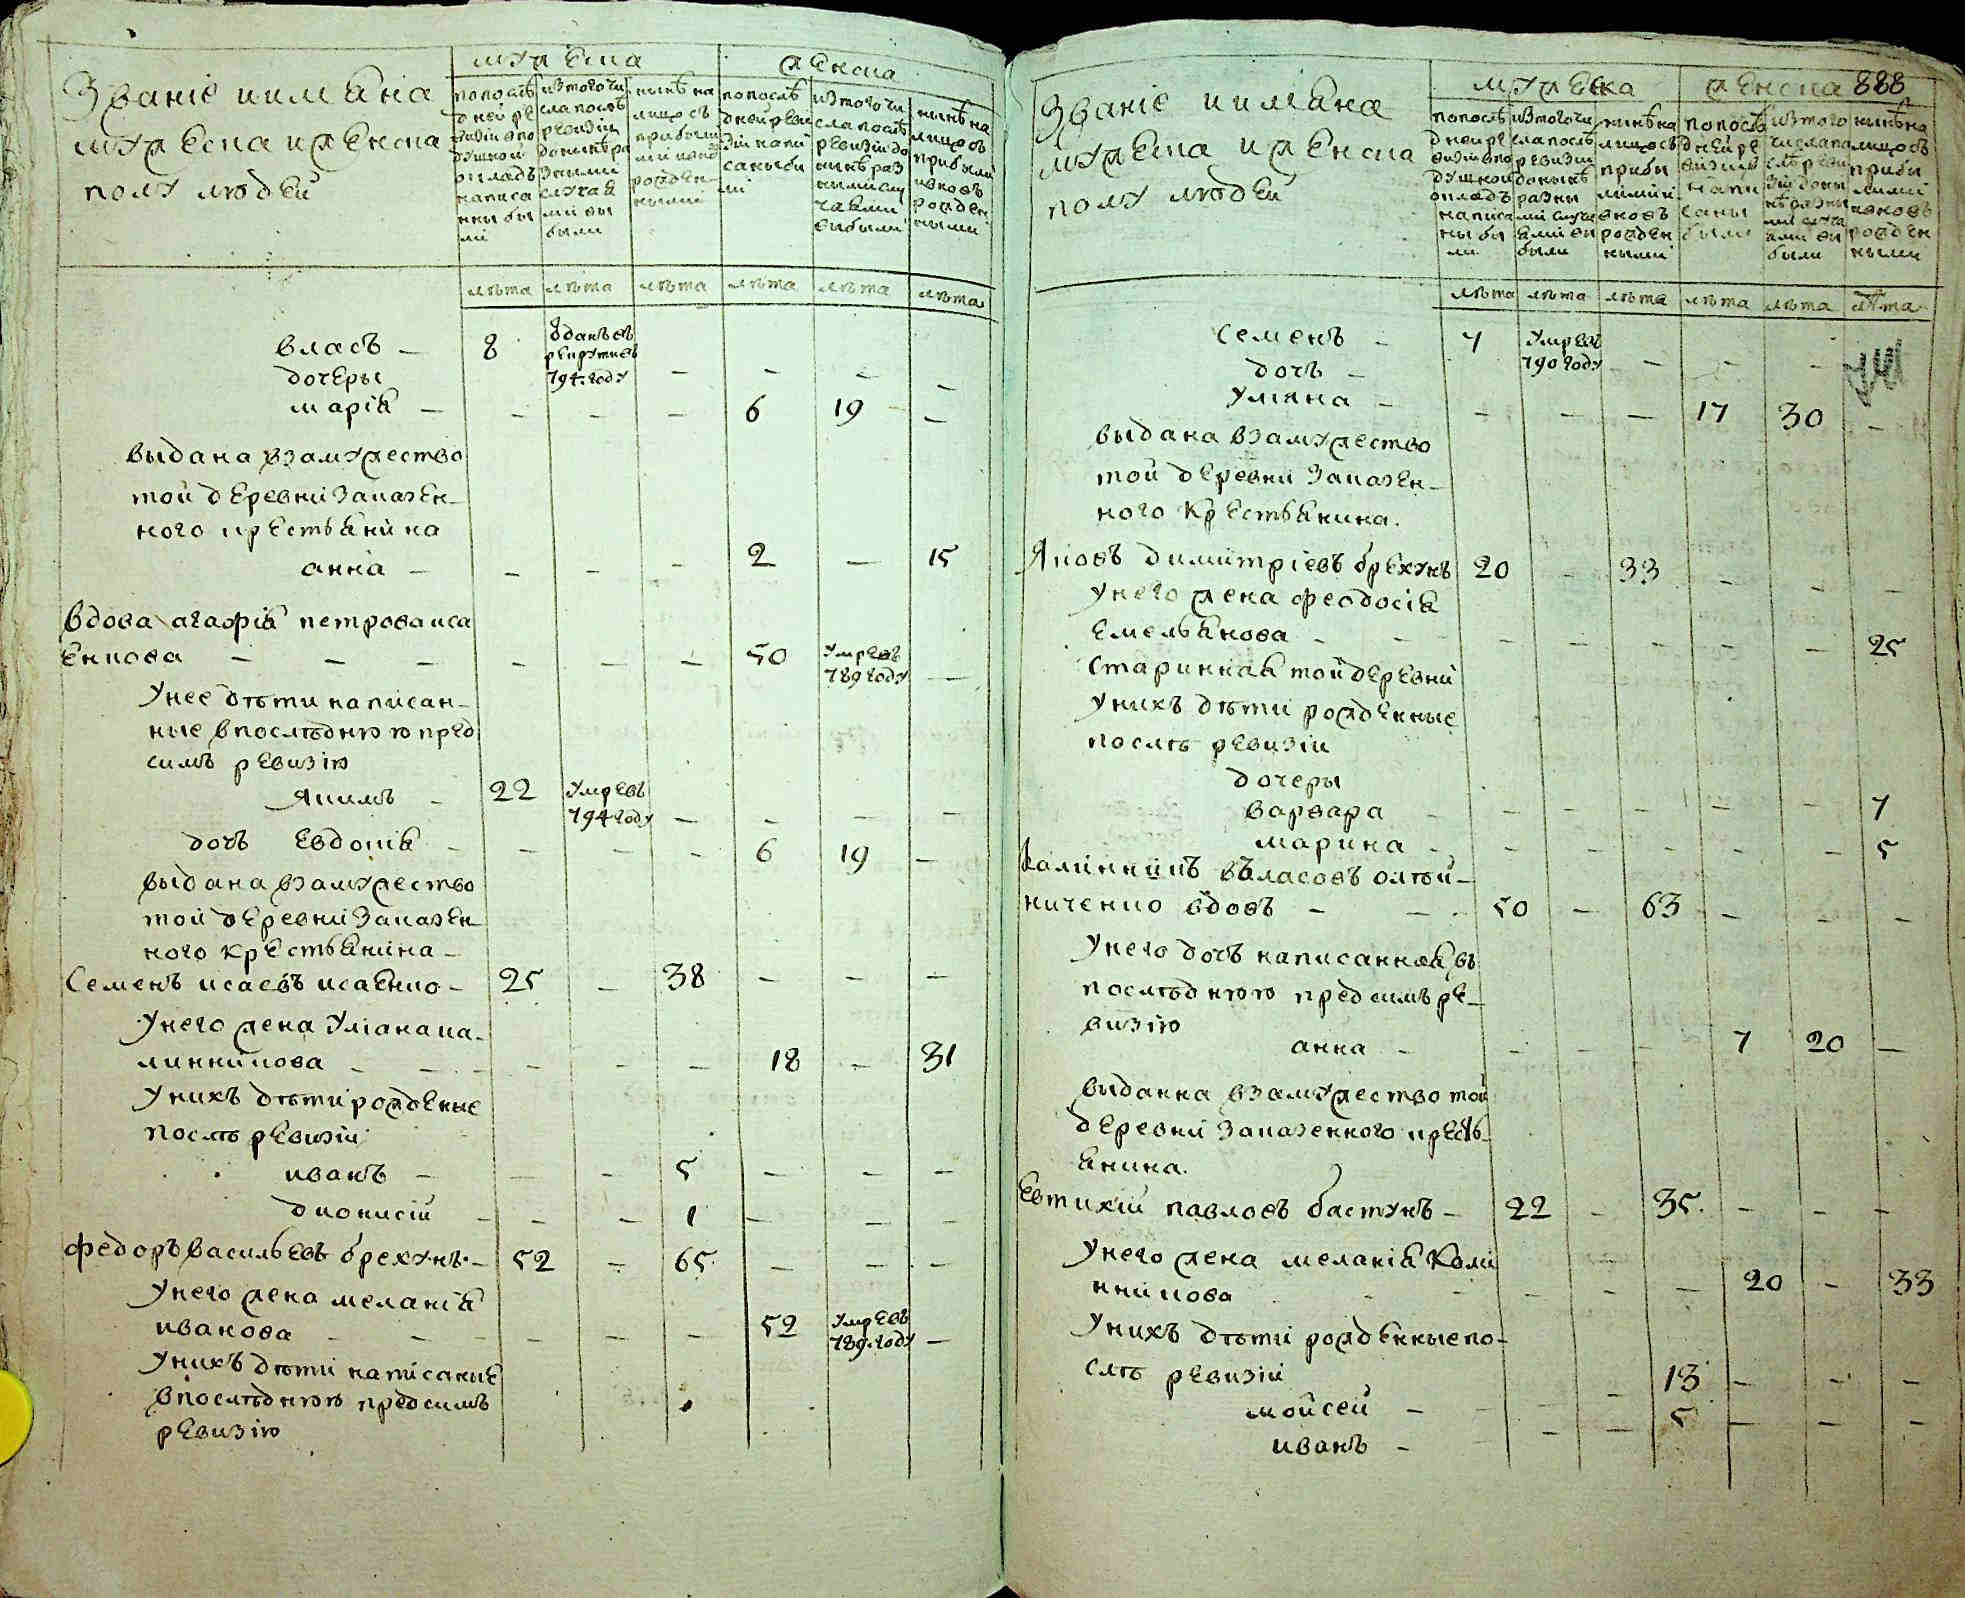 Званіе иимѣна
мужеска иженска
полу людей
мужеска
женска
попослѣ
дней ре
визіи впо
душной
окладъ
написа
ны бы
ли
изтогочи
сла послѣ
ревизіи
донынѣ ра
зными
случая
ми вы
были
нынѣ на
лицо съ
прибылы
ми ивно
рожден
ными
попослѣ
дней реви
зіи напи
саны бы
ли
изтогочи
сла послѣ
ревизіи до
нынѣ раз
ными слу
чаями
выбыли
нынѣ на
лицо съ
прибылы
ивновь
рожден
ными
лѣта лѣта лѣта лѣта лѣта лѣта
власъ – 8 Отданъ въ
рекруты въ
794: году – – – –
дочеры
марія – – – – 6 19 –
выдана взамужество
той деревни заказен–
ного крестьянина
анна – – – – 2 – 15
вдова агафія петрова иса
енкова – – – – – – 50 умре въ
789 году –
унее дѣти написан–
ные впослѣднюю пред
симъ ревизію
Якимъ – 22 умре въ
794 году – – – –
дочь евдокія – – – – 6 19 –
выдана взамужество
той деревни заказен
ного крестьянина –
Семенъ исаевъ исаенко – 25 – 38 – – –
унего жена уліана ка–
линникова – – – – – – 18 – 31
унихъ дѣти рожденые
послѣ ревизіи
иванъ – – – 5 – – –
дионисій – – – 1 – – –
федоръ васильевъ брехунъ – 52 – 65 – – –
унего жена меланія
иванова – – – – – – 52 умре въ
789. году –
унихъ дѣти написаные
впослѣднюю предсимъ
ревизію
Званіе иимѣна
мужеска иженска
полу людей
мужеска
женска 888
попослѣ
дней ре
визіи впо
душной
окладъ
написа
ны бы
ли
изтогочи
сла послѣ
ревизіи
донынѣ
разны
ми случа
ями вы
были
нынѣ на
лицо съ
прибы
лыми и
вновь
рожден
ными
попослѣ
дней ре
визіи
напи
саны
были
изтого
числа по
слѣ реви
зіи доны
нѣ разны
ми случа
ями вы
были
нынѣ на
лицо съ
прибы
лыми
ивновь
рожден
ными
лѣта лѣта лѣта лѣта лѣта лѣта
Семенъ – 7 умре въ
790 году – – –
дочь –
уліяна – – – – 17 30 –
выдана взамужество
той деревни заказен–
ного крестьянина.
Яковъ димитріевъ брехунъ 20 – 33 – – –
унего жена феодосія
емельянова – – – – – – – 25
старинная той деревни
унихъ дѣти рожденные
послѣ ревизіи
дочеры
варвара – – – – – – 7
марина – – – – – – 5
Калинникъ власовъ олѣй–
ниченко вдовъ – – – 50 – 63 – – –
унего дочь написанная въ
послѣднюю предсимъ ре–
визію
анна – – – – 7 20 –
выданна взамужество той
деревни заказенного кресть–
янина.
Евтихій павловъ бастунъ – 22 – 35. – – –
унего жена меланія Кали
нникова – – – – 20 – 33
унихъ дѣти рожденные по–
слѣ ревизіи
мойсей – – – 13 – – –
иванъ – – – 5 – – –